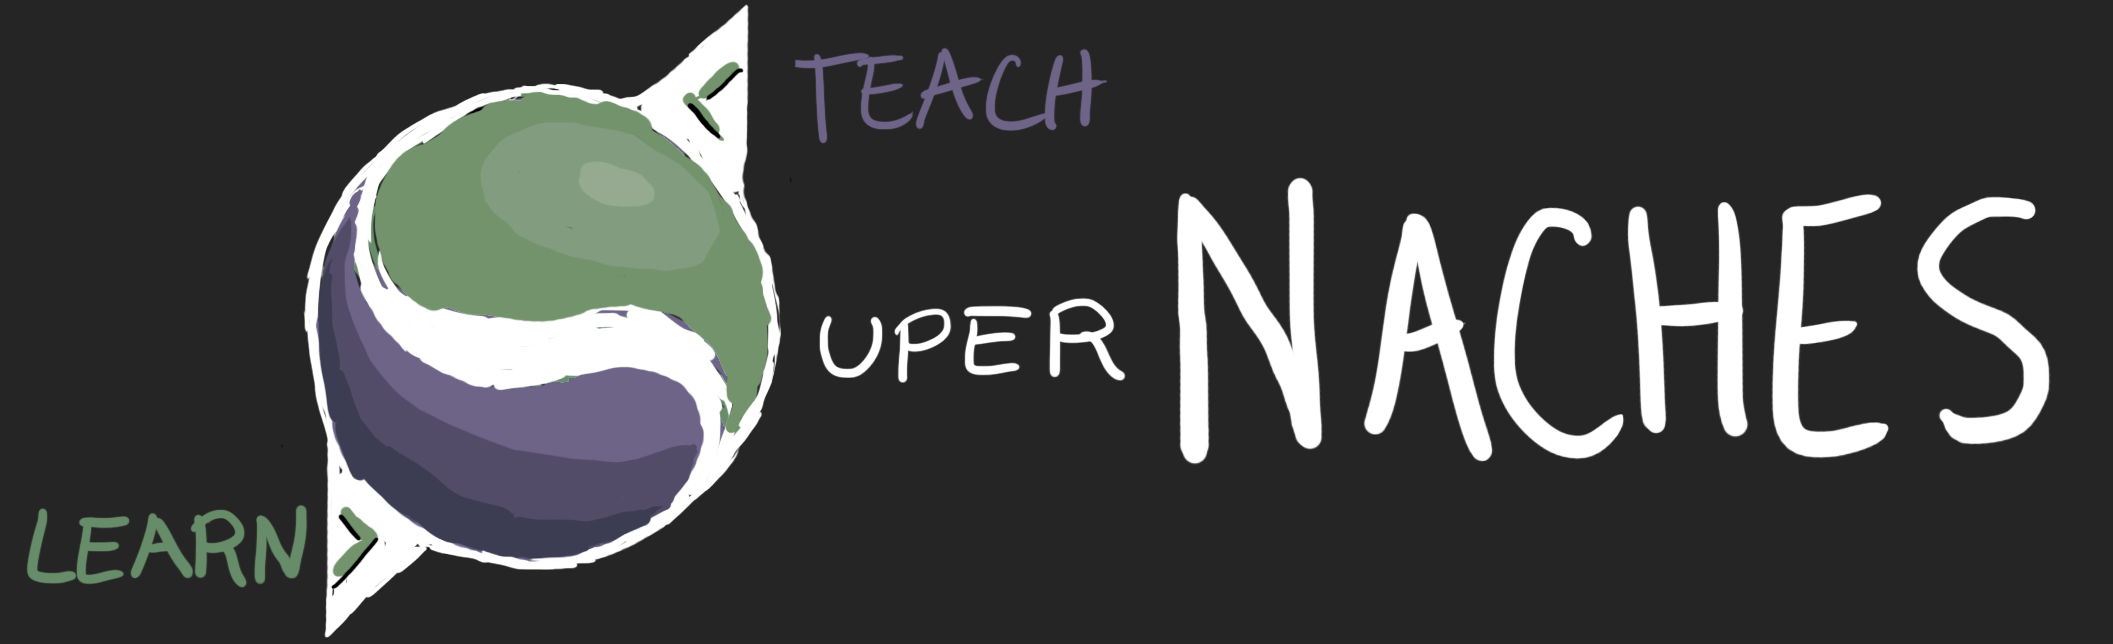 TEACH
UPER NACHES
LEARN